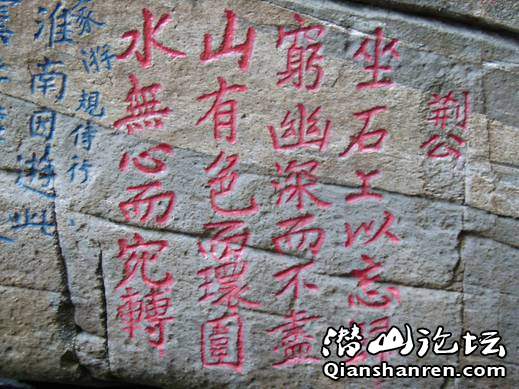 荆公
坐石上以忘歸
窮幽深而不盡
山有色而環圍
水無心而宛轉
游規侍行
淮南因遊此
潜山论坛
Qianshanren.com